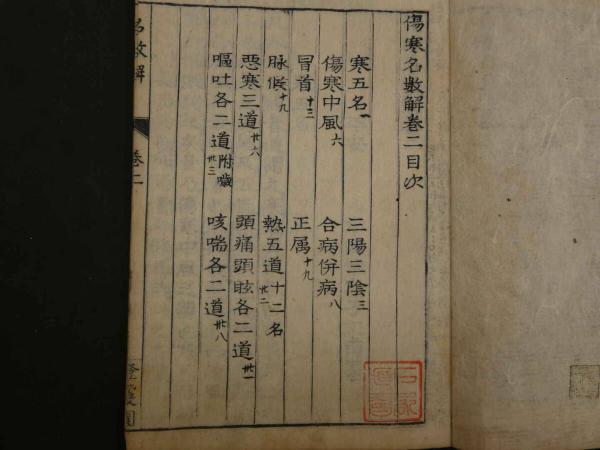 傷寒名數解卷二目次
寒五名一 三陽三陰三
傷寒中風六 合病併病八
冒首十三 正属十九
脉候十九 熱五道十二名廿二
惡寒三道廿六 頭痛頭眩各二道卅一
嘔吐各二道附噦卅三 咳喘各二道卅八
名數解
卷二